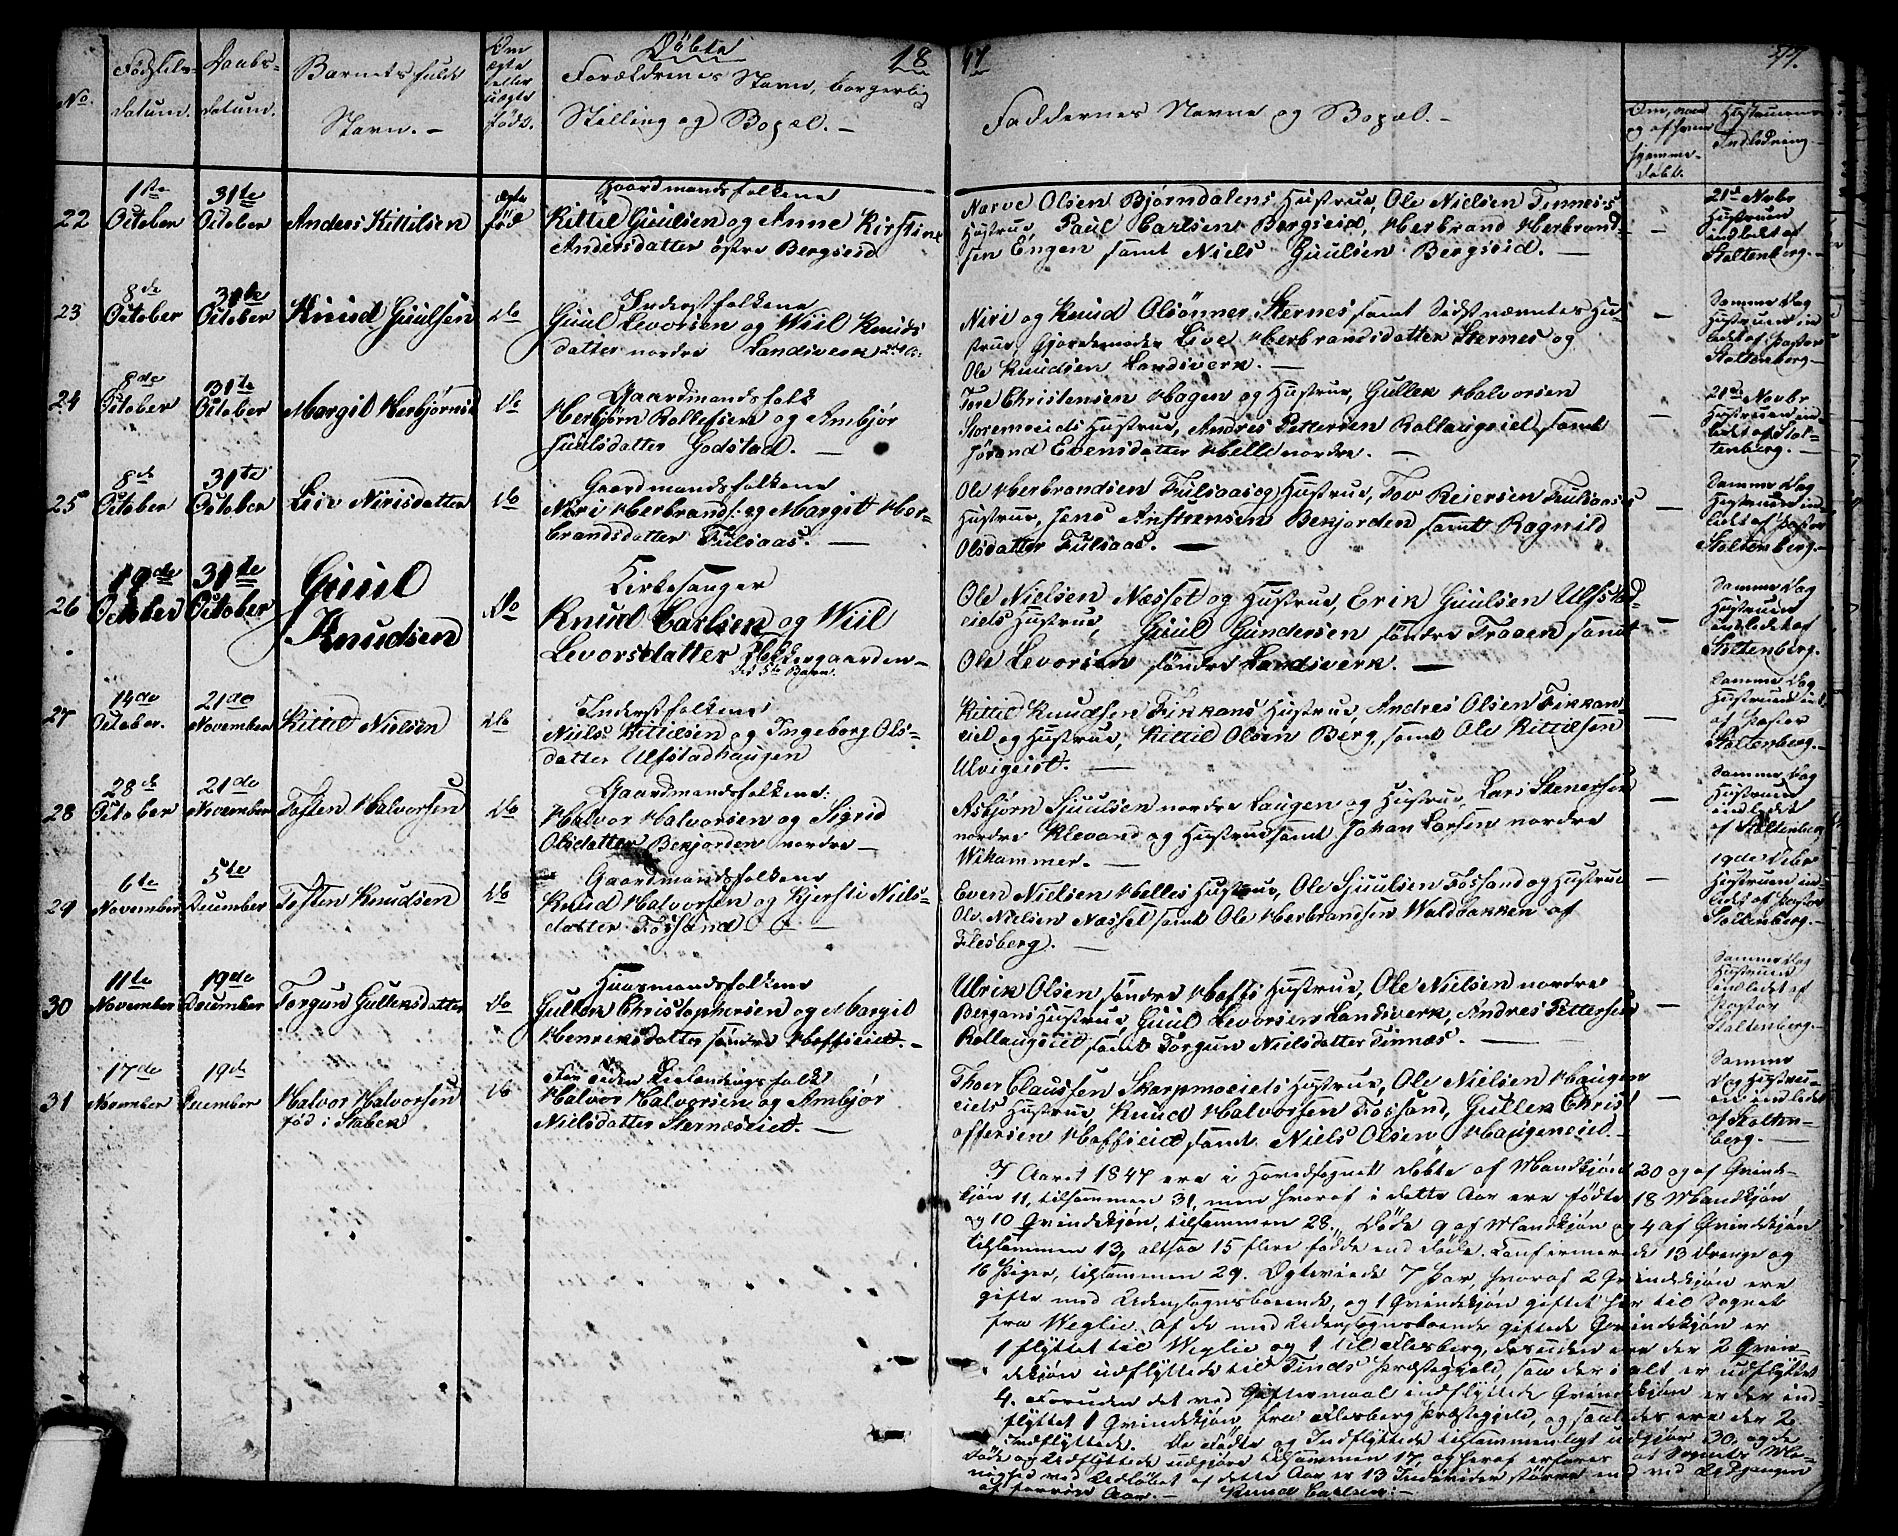 Döbte 18 47 37.
No.
Fødsels-
datum.
Daabs-
datum.
Barnets fulde
Navn. –
Om
ægte
eller
uægte
født.
Forældrenes Navn, borgerlig
Stilling og Bopæl. –
Faddernes Navne og Bopæl. –
Om, naar
og af hvem
hjemme-
døbt.
Hustruens
Indledning. –
22
1ste
October
31te
October
Anders Kittilsen
ægte
fød
Gaardmandsfolkene
Kittil Guulsen og Anne Kirstine
Andersdatter östre Bergseid
Narve Olsen Bjørndalens Hustrue, Ole Nielsen Tinnesis
Hustrue, Paul Carlsen Bergseid, Herbrand Herbrand-
sen Engen samt Niels Guulsen Bergseid. –
21de Novbr
Hustruen
indledt af
Stoltenberg. –
23
8de
October
31te
October
Knud Guulsen
do
Inderstfolkene
Guul Levorsen og Wiil Knuds
datter nordre Landsverk
Niri og Knud Olsönner Sternes samt Sidstnævntes Hu-
strue, Gjordemoder Live Herbrandsdatter Sternes og
Ole Knudsen Landsverk. –
Samme Dag
Hustruen in
ledet af Pastor
Stoltenberg. –
24
8de
October
31te
October
Margit Herbjørnsd
do
Gaardmandsfolk
Herbjørn Rollefsen og Ambjör
Juulsdatter Godstad. –
Tore Christensen Hagen og Hustrue, Gullek Halvorsen
Storemoeiets Hustrue, Andres Pettersen Rollaugseiet, samt
Jörand Evensdatter Helle nordre. –
21de Novbr
Hustruen in-
ledet af Stol-
tenberg. –
25
8de
October
31te
October
Liv Nirisdatter
do
Gaardmandsfolkene
Niri Herbrands: og Margit Her-
brandsdatter Fulsaas. –
Ole Herbrandsen Fulsaas og Hustrue, Tov Reiersen Fulsaas
Hustrue, Jens Anstensen Bekjorden samt Ragnild
Olsdatter Fulsaas. –
Samme Dag
Hustruen in-
ledet af Pastor
Stoltenberg. –
26
19de
October
31te
October
Guul
Knudsen
Do
Kirkesanger
Knud Carlsen og Wiil
Levorsdatter Neddergaarden –
Det 5te Barn.
Ole Nielsen Næsset og Hustrue, Erik Guulsen Ulfstad-
eiets Hustrue, Guul Gundersen söndre Traaen samt
Ole Levorsen söndre Landsverk. –
Samme Dag
Hustruen
indledet af
Stoltenberg.
27
14de
October.
21de
November
Kittil Nielsen
do
Inderstfolkene
Niels Kittilsen og Ingeborg Ols-
datter Ulfstadhaugen
Kittil Knudsen Fikkans Hustrue, Andres Olsen Fikkan
eiet og Hustrue, Kittil Olsen Berg, samt Ole Kittilsen
Ulvigeiet. –
Samme Dag
Hustruen indl.
af Pastor
Stoltenberg. –
28
28de
October
21de
November
Tosten Halvorsen
do
Gaardmandsfolkene.
Halvor Halvorsen og Sigrid
Olsdatter Bekjorden nordre –
Asbjörn Sjuulsen nordre Laugen og Hustrue, Lars Stenersen
nordre Klevand og Hustrue samt Johan Larsen nordre
Wikammer. –
Samme Dag
Hustruen
indledet
af Stoltenberg
29
6te
November
5te
December
Tosten Knudsen
do
Gaardmandsfolkene
Knud Halvorsen og Kjersti Niels-
datter Fossand. –
Even Nielsen Helles Hustrue, Ole Sjuulsen Fossand og Hustrue
Ole Nielsen Næsset samt Ole Herbrandsen Waldbakken af
Flesberg. –
19de Debr
Hustruen in-
ledet af Pastor
Stoltenberg. –
30
11te
November
19de
December
Torgun Gulleksdatter
do
Huusmandsfolkene
Gullek Christophersen og Margit
Henriksdatter söndre Hoffseiet. –
Ulrik Olsen söndre Hoffs Hustrue, Ole Nielsen nordre
Bergans Hustrue, Guul Levorsen Landsverk, Andres Pettersen
Rollaugseiet samt Torgun Nielsdatter Tinnæs. –
Samme Dag
Hustruen
indledet af
Pastor
Stoltenberg. –
31
17de
November
19de
December
Halvor Halvorsen
fød i Staben
do
For Tiden Leilændingsfolk
Halvor Halvorsen og Ambjør
Nielsdatter Sternæseiet. –
Thor Claussen Skarpmoeiets Hustrue, Ole Nielsen Haugen
eiets Hustrue, Knud Halvorsen Fossand, Gullek Christ
offersen Hoffseiet samt Niels Olsen Haugeneiet. –
Samme
Dag Hustru-
en indledet
af Stolten-
berg. –
I Aaret 1847 ere i Hovedsognet döbte af Mandkjön 20 og af Qvinde-
kjön 11, tilsammen 31, men hvoraf i dette Aar ere födte 18 Mandkjön
og 10 Qvindekjön, tilsammen 28. Döde 9 af Mandkjön og 4 af Qvindekjön
tilsammen 13, altsaa 15 flere födde end döde. Confirmerede 13 Drenge og
16 Piger, tilsammen 29. Ægteviede 7 Par, hvoraf 2 Qvindekjön ere
gifte med Udensognsboende, og 1 Qvindekjön giftet her til Sognet
fra Weglie. Af de med Udensognsboende giftede Qvindekjön er
1 flyttet til Weglie og 1 til Flesberg, desuden ere der 2 Qvin-
dekjön udflyttede til Tinds Præstegjeld, saa der i alt er udflyttet
4. Foruden det ved Giftermaal indflyttede Qvindekjön er der ind
flyttet 1 Qvindekjön, fra Flesberg Præstegjeld, og saaledes ere der 2
Indflyttede. De Födte og Indflyttede tilsammenlagt udgjör 30, og de
Döde og Udflyttede udgjöre tilsammen 17, og heraf erfares at Sognets Mæ-
nighed ved Udløbet af dette Aar er 13 Individer större end ved Udgangen
af forrige Aar. – Knud Carlsen. –